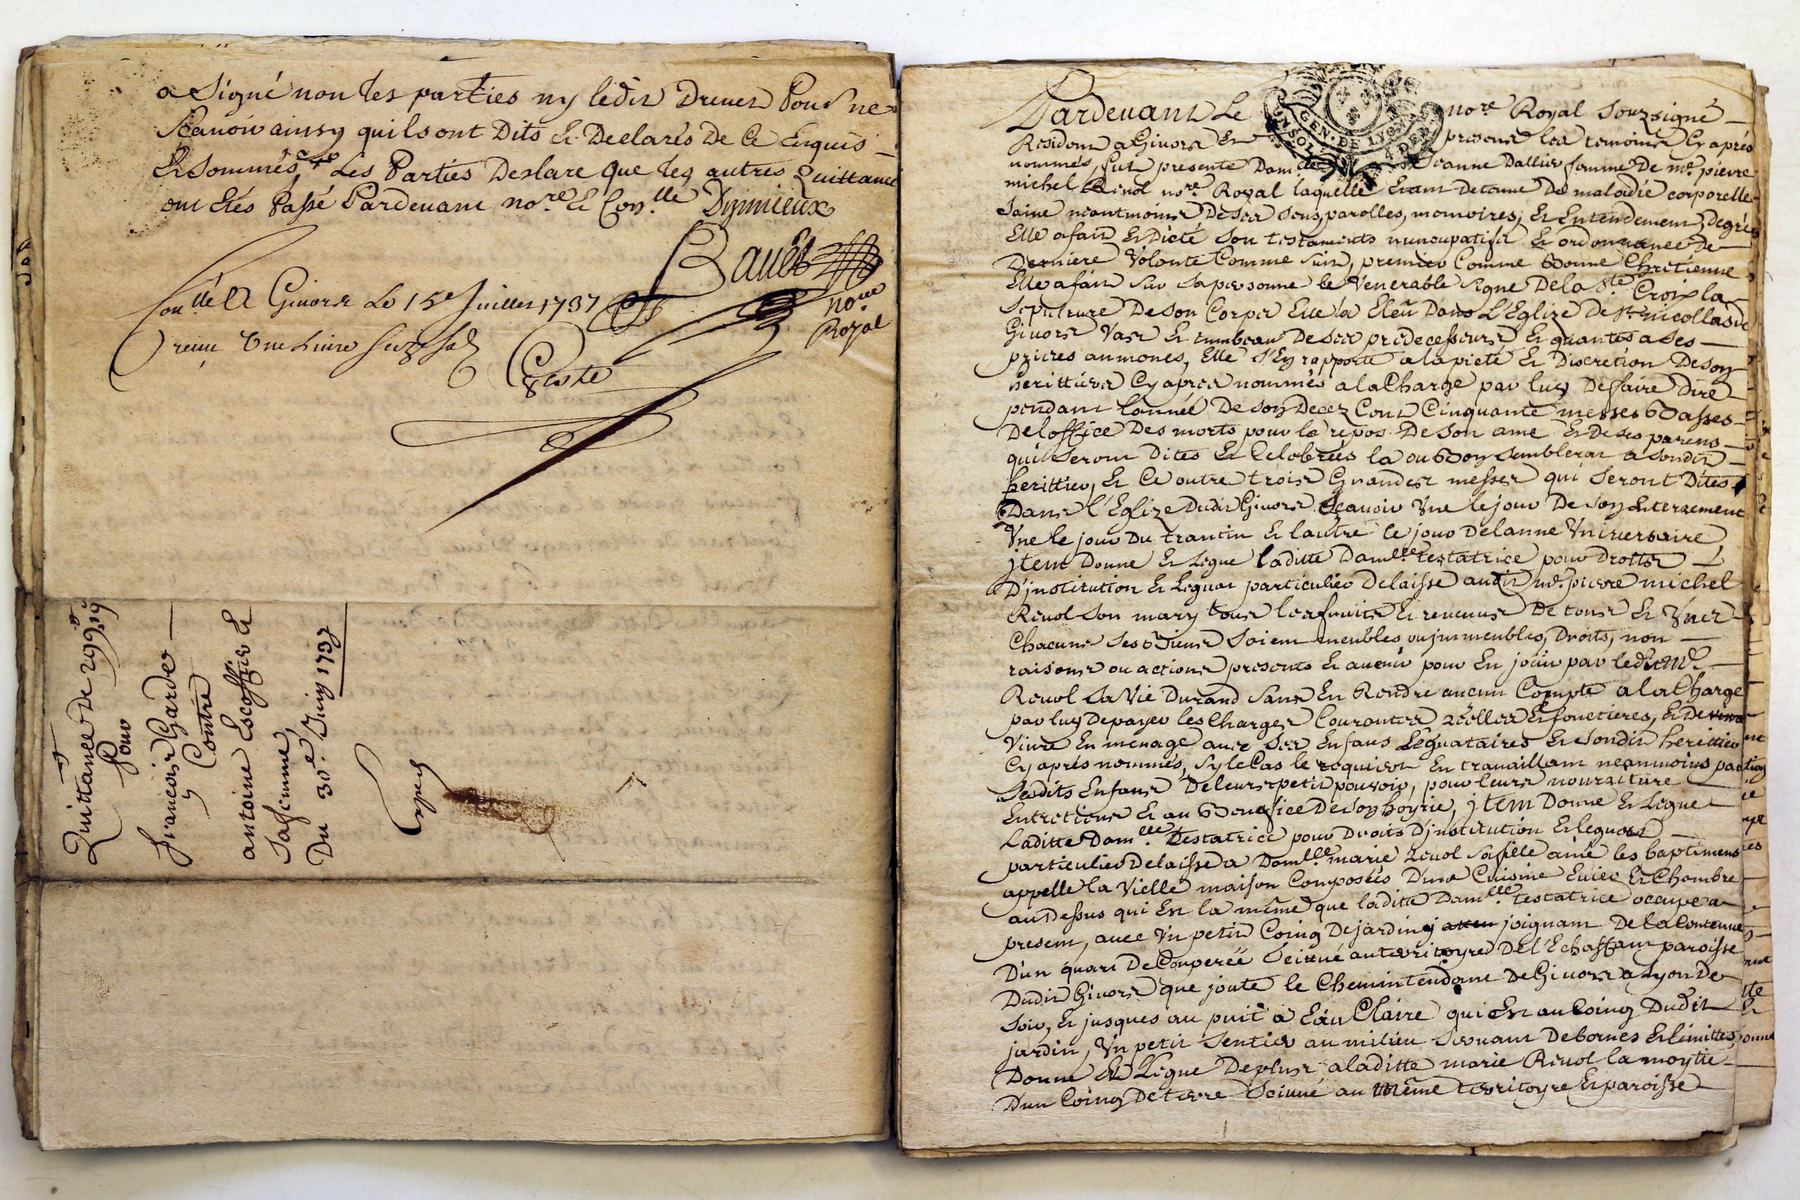 a Signé non les parties ny ledit Drevet Pour ne
Scavoir ainsy quils ont Dits et Declarés De Ce Enquis
Et Sommés Les Parties Deslare que les autres Quittance
ont Etés Passé Pardevant no.re et Con.lle Dizmieux
Bavet
no.re
Royal
Con.llé A Givors Le 15e Juillet 1737
receu Une Livre
Quittance De 299
Pour
francois Garde
Contre
antoine Escoffier et
Safemme,
Du 30.e Juin 1737
Exped
Pardevant Le no.re Royal Souzsigné
GEN. DE LYON
Resident a Givors Et presens les temoins Cy aprés
nommés, fut presente Dam.lle Jeanne Dallier femme De m.e pierre
michel Revol no.re Royal laquelle Etant Detenue De maladie corporelle
Saine neantmoins De Ses Sens, parolles, memoires, Et Entendement, Degrés
Elle a fait Et Dicté Son testaments nuncupatif Et ordonnance De
Derniere Volonté Comme Suit, premier Comme Bonne Chretienne
Elle a fait Sur Sa personne le Venerable Signe De la S.te Croix la
Sepulture De Son Corps Elle a Eleu Dans L'Eglize De St nicollas de
Givors Vase Et tumbeau De Ses predecesseurs Et quantes a Ses
prieres aumones, Elle S'En rapporte a la pieté Et Discretion De Son
herittier Cy apres nommés a la Charge par luy De faire Dire
pendant lannée De Son Decez Cent Cinquante messes Basses
De loffice Des morts pour le repos De Son ame Et De Ses parens
qui Seront Dites Et Celebrées la ou Bon Semblerat a Sondit
herittier, Et Ce outre trois Grandes messes qui Seront Dites
Dans l'Eglize Dudit Givors Scavoir Une le jour De Son Enterrement
Une le jour Du trantin Et lautre le jour De lanne Universaire
jtem Donne Et Legue laditte Dam.lle testatrice pour Droits
D'jnstitution Et Leguat particulier Delaisse audit m.e pierre michel
Revol Son mary tous les fruits Et revenus De tous Et Uns
Chacuns Ses Biens Soient meubles ou jmmeubles, Droits, non
raisons ou actions presents Et avenir pour En jouir par ledit M.e
Revol Sa Vie Durand Sans En Rendre aucun Compte a la Charge
par luy De payer les Charges Courantes réelles Et foncieres, Et De
Vivre En menage avec Ses Enfans Leguataires Et Sondit herittier
Cy aprés nommés, Sy le Cas le requiert En travaillant neanmoins par
Sesdits Enfans De leurs petit pouvoir, pour leurs nourriture
Entretiens Et au Benefice De Son hoyrie, jtem Donne Et Legue
Laditte Dam.lle testatrice pour Droits D'jnstitution Et leguat
particulier Delaisse a Dam.lle marie Revol Sa fille ainé les baptiments
appellé la Vielle maison Composées D'une Cuisine Evier Et Chambre
au Dessus qui Est la même que laditte Dam.lle testatrice occupe a
present, avec Un petit Coing De jardin joignant De la Contenue
D'un quart De Couperée Scittué au territoyre De l'Echaffant paroisse
Dudit Givors que joute le Chemin tendant De Givors a Lyon De
Soir, Et jusques au puit a Eau Claire qui Est au Coing Dudit
jardin, Un petit Sentier au milieu Servant De bornes Et limittes
Donne Et Legue De plus a laditte marie Revol la moytie
D'un Coing De terre Scitué au même territoyre Et paroisse